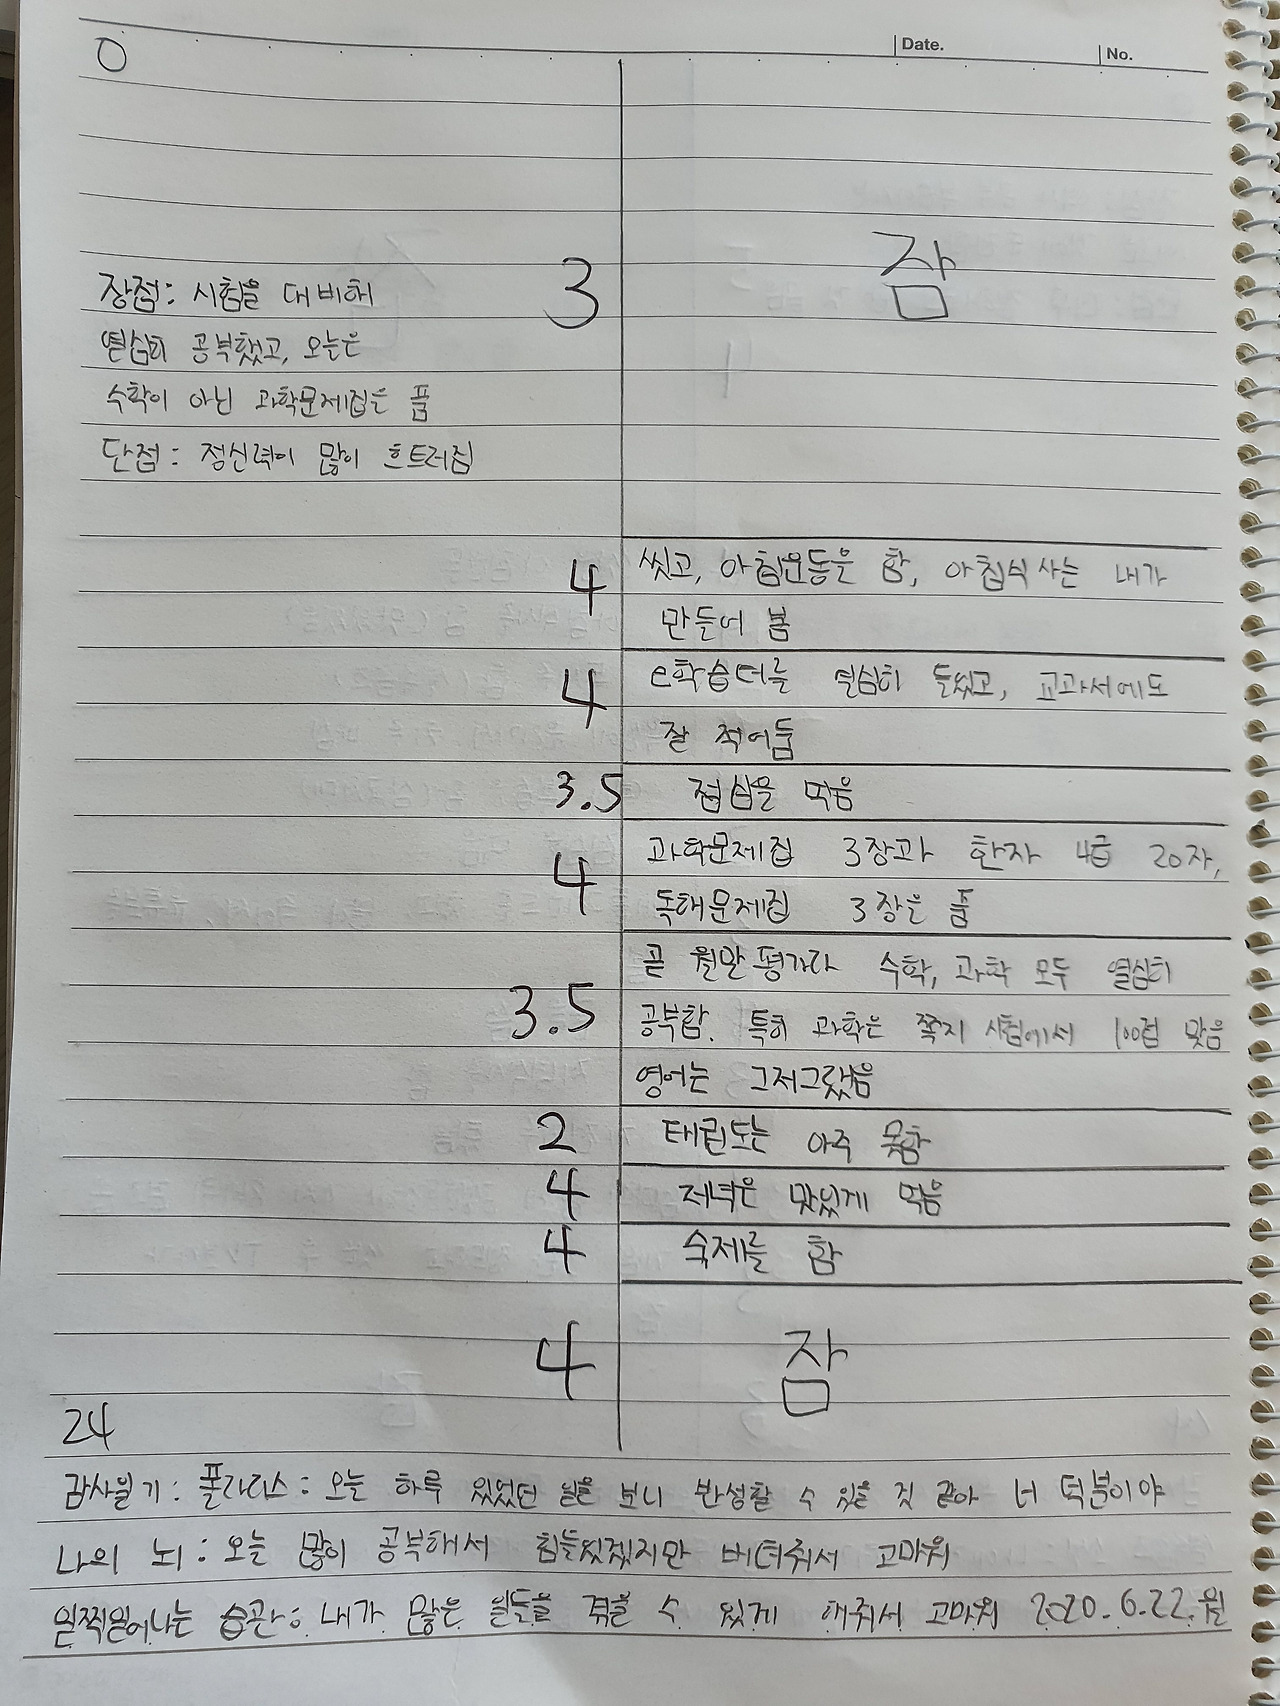 Date.
No.
0
3 잠
장점: 시험을 대비해
열심히 공부했고, 오늘은
수학이 아닌 과학문제집은 품
단점: 정신력이 많이 흐트러짐
4 씻고, 아침운동을 함, 아침식사는 내가
만들어 봄
4 e학습터를 열심히 들었고, 교과서에도
잘 적어둠
3.5 점심을 먹음
4 과학문제집 3장과 한자 4급 20자,
독해문제집 3장은 품
3.5 곧 월말평가라 수학, 과학 모두 열심히
공부함. 특히 과학은 쪽지 시험에서 100점 맞음
영어는 그저그랬음
2 태권도는 아주 못함
4 저녁은 맛있게 먹음
4 숙제를 함
4 잠
24
감사일기: 폴라리스: 오늘 하루 있었던 일을 보니 반성할 수 있을 것 같아 너 덕분이야
나의 뇌: 오늘 많이 공부해서 힘들었겠지만 버텨줘서 고마워
일찍일어나는 습관: 내가 많은 일들을 겪을 수 있게 해줘서 고마워 2020.6.22.월